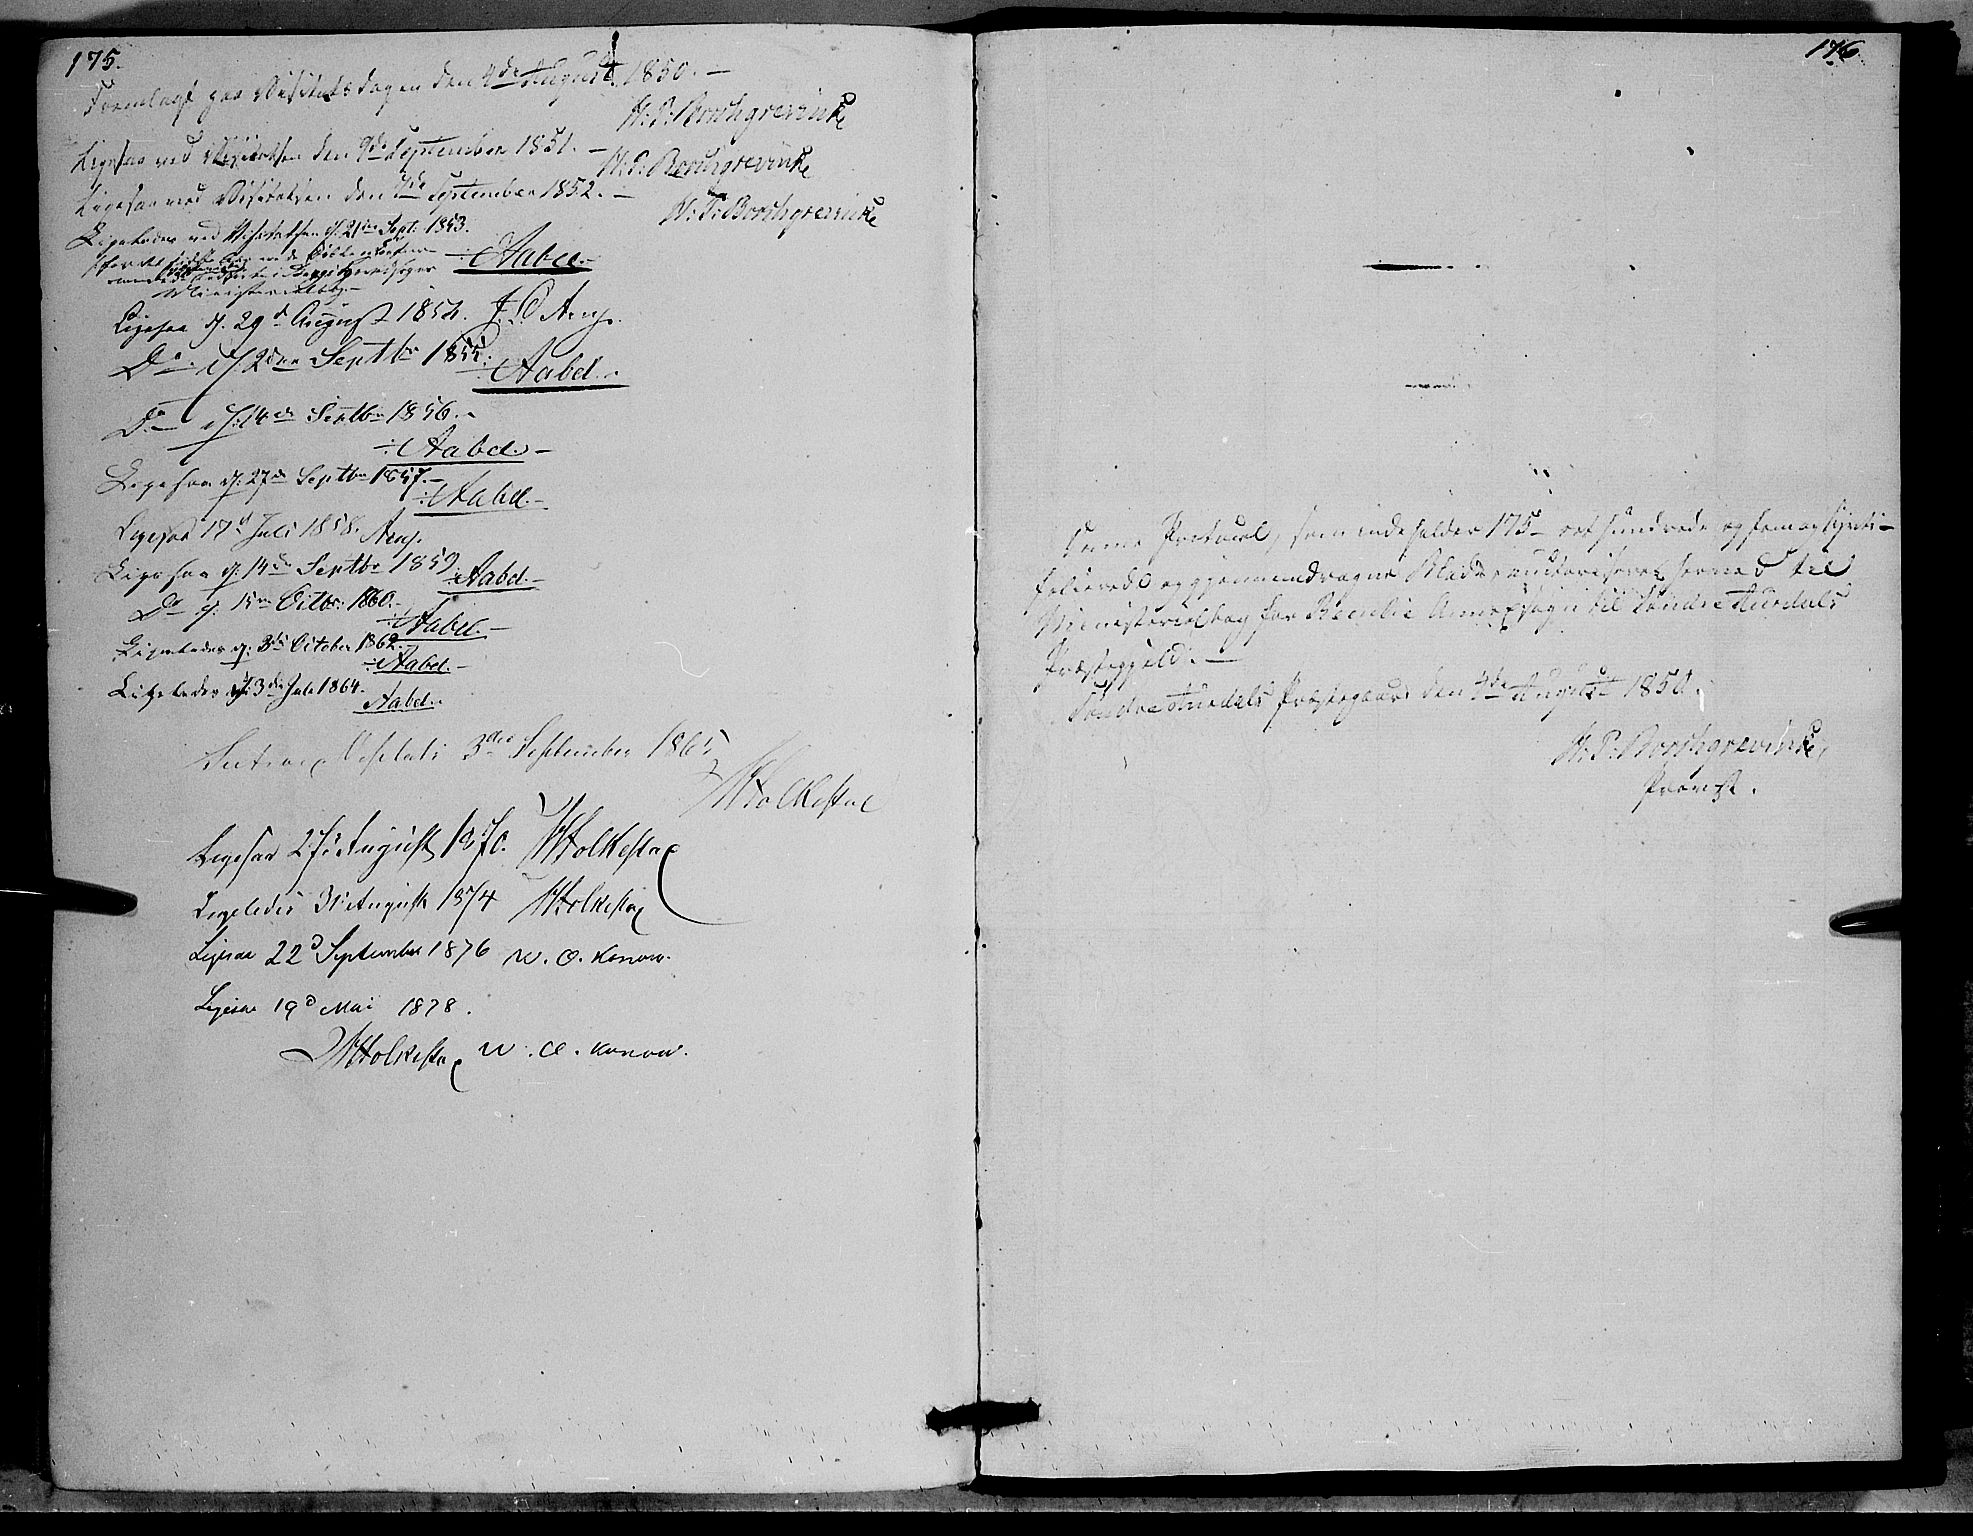 175.
Foreviist paa Visitatsdagen den 4de August 1850. —
H. P. Borchgrevink
Ligesaa ved Visitatsen den 9de September 1851. —
H. P. Borchgrevink
Ligesaa ved Visitatsen den 7de September 1852. —
H. P. Borchgrevink
Ligeledes ved Visitatsen d. 21de Sept. 1853.
Aabel.
Ministerialbog.—
Ligesaa d. 29d August 1854. Arup.
Do d. 2den Septbr 1855.
Aabel.
Do d. 14de Septbr 1856.
Aabel.
Ligesaa d. 27de Septbr 1857.
Aabel.
Ligesaa 17d Juli 1858. Arup.
Ligesaa d. 14de Septbr 1859.
Aabel.
Do d. 15de Octbr: 1860.
Aabel.
Ligeledes d. 3die October 1862.
Aabel.
Ligeledes d. 3die Juli 1864.
Aabel.
Visitats 3die September 1865
Holkestad
Ligesaa 27 August 1870. Holkestad
Ligeledes 31 August 1874 Holkestad
Ligesaa 22d September 1876 W. O. Konow.
Ligesaa 19d Mai 1878.
Holkestad W. O. Konow.
176.
Denne Protocol, som indeholder 175 - eet hundrede og femogsyvti -
folierede og gjennemdragne Blade, authoriseres herved til
Ministerialbog for Annexsogn til Søndre Aurdals
Præstegjeld. —
Søndre Aurdals Præstegaard den 4de August 1850.
H. P. Borchgrevink,
Provst.